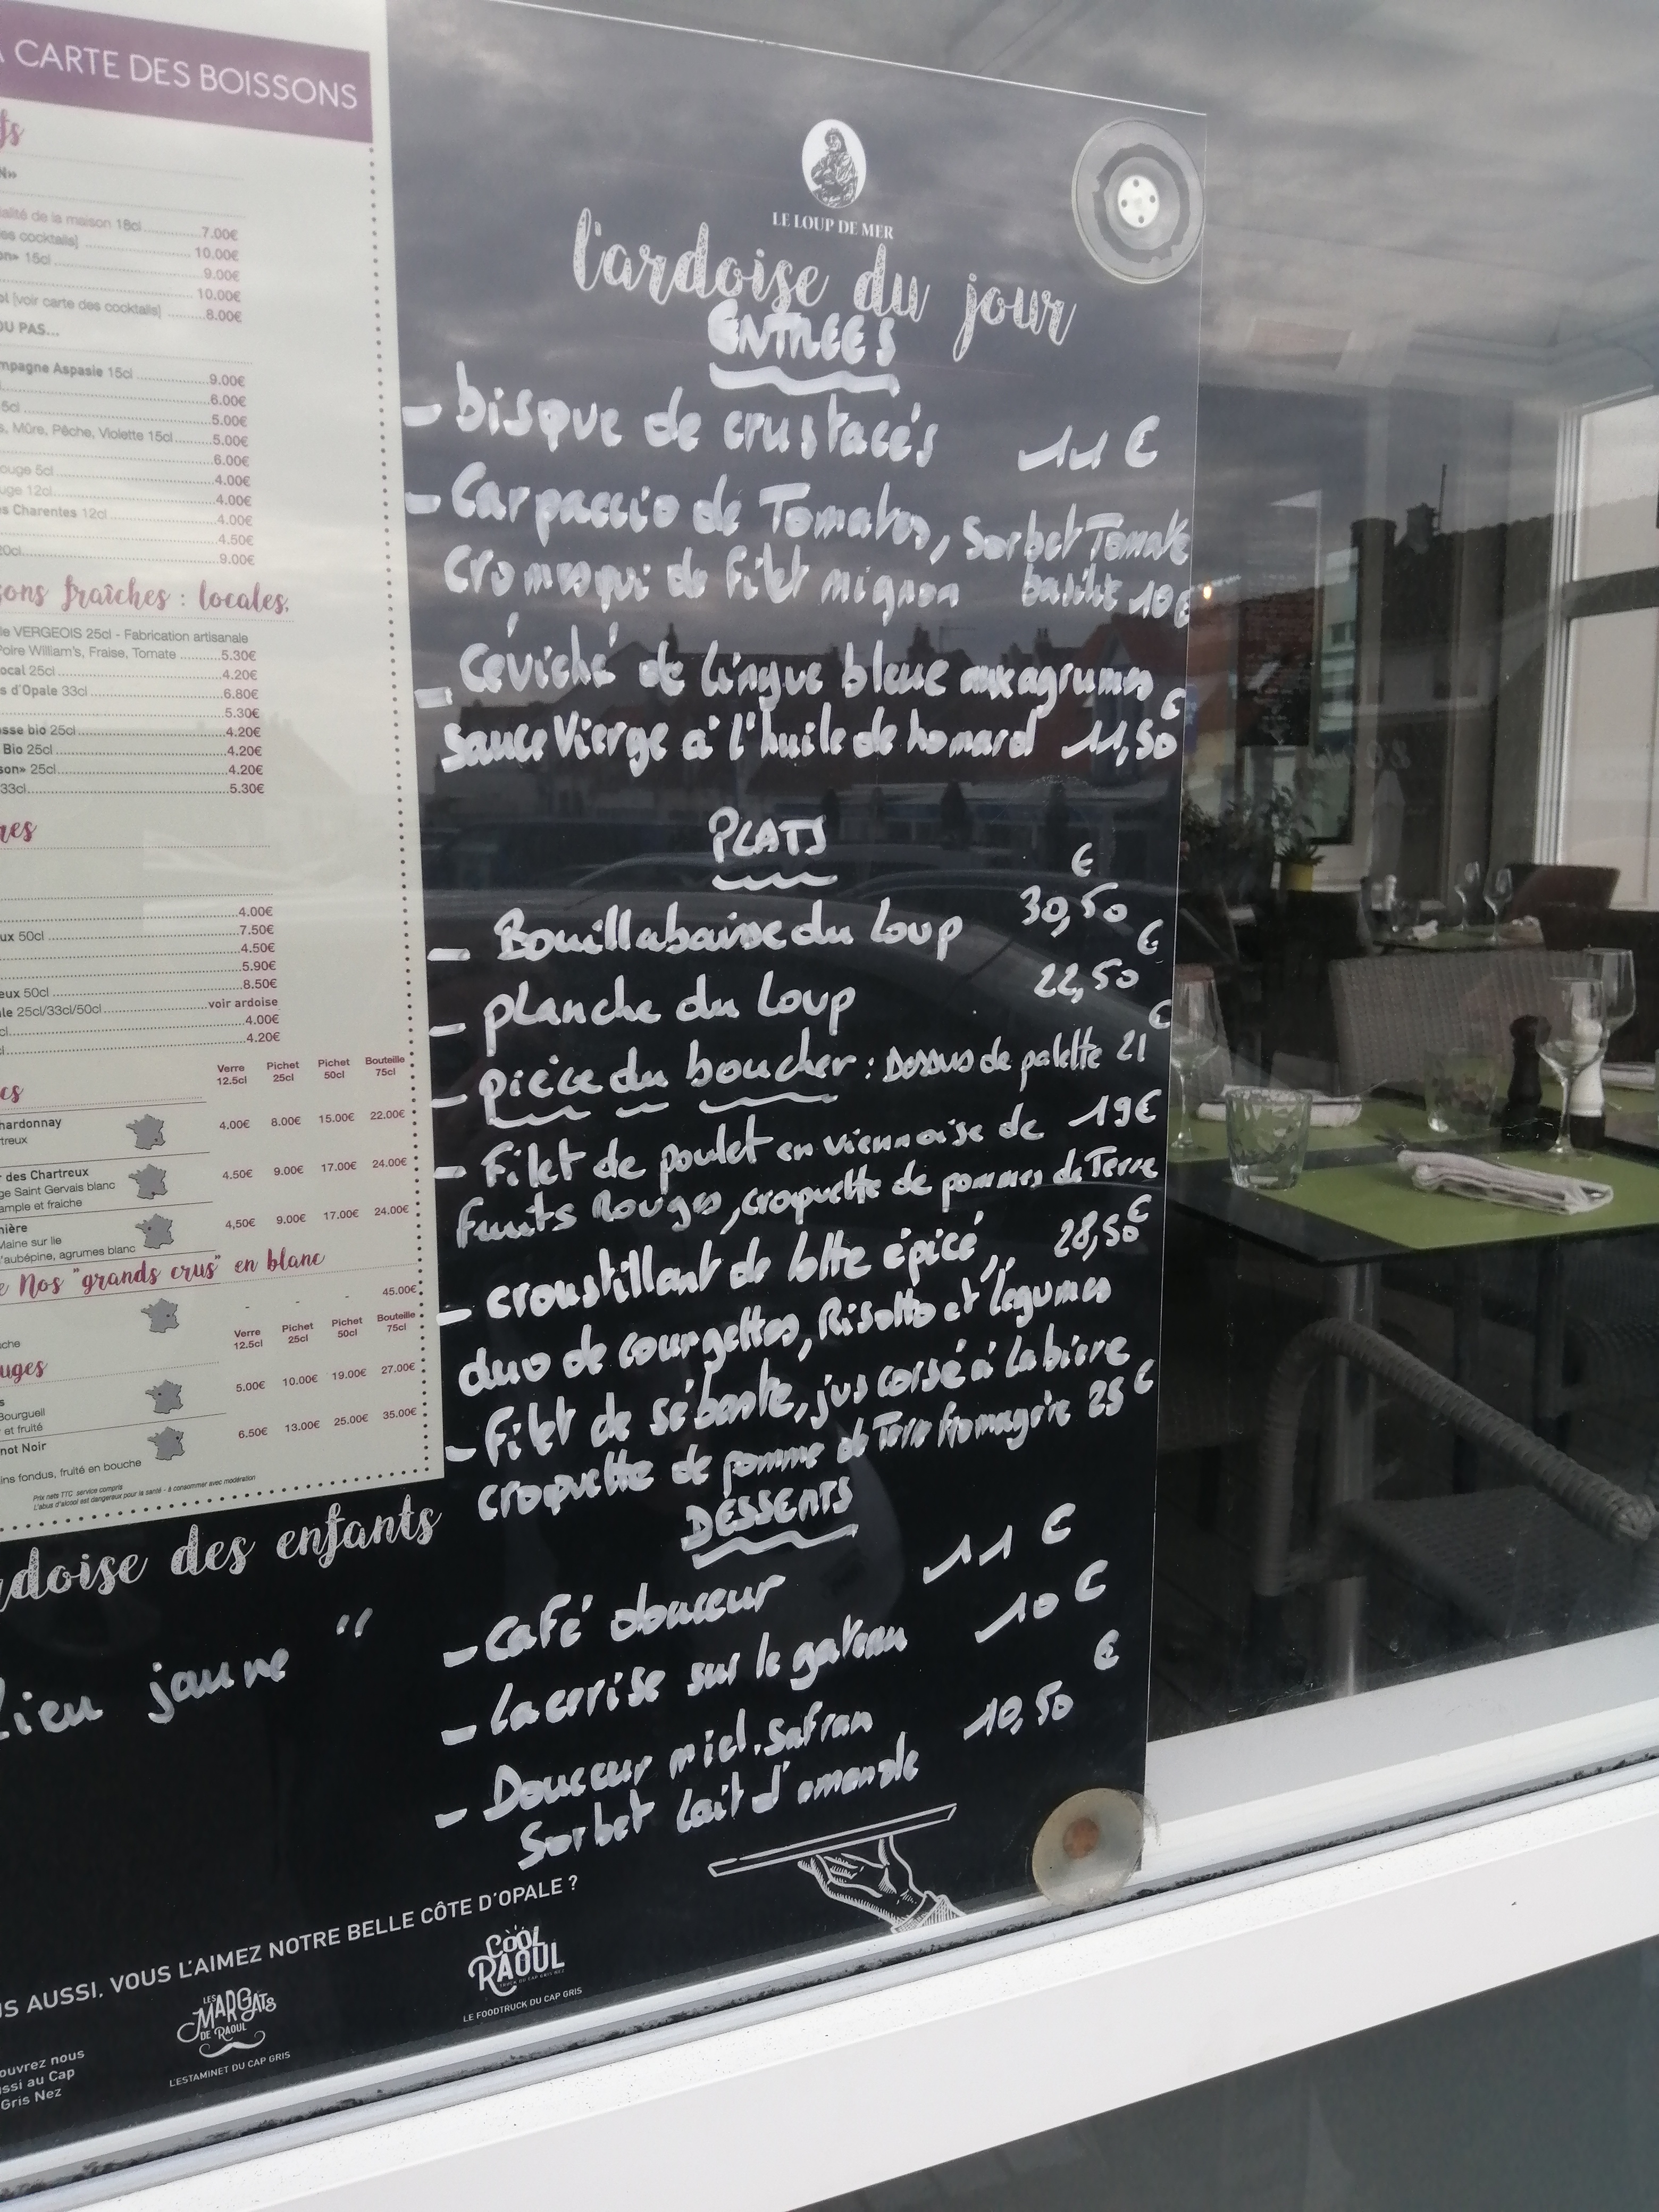 CARTE DES BOISSONS
maison 18cl 7.00€
cocktails] 10.00€
15cl 9.00€
10.00€
[voir carte des cocktails] 8.00€
OU PAS...
Aspasie 15cl 9.00€
6.00€
5.00€
Mûre, Pêche, Violette 15cl 5.00€
6.00€
5cl 4.00€
12cl 4.00€
Charentes 12cl 4.00€
4.50€
9.00€
fraîches : locales,
VERGEOIS 25cl - Fabrication artisanale
Poire William's, Fraise, Tomate 5.30€
25cl 4.20€
d'Opale 33cl 6.80€
5.30€
bio 25cl 4.20€
Bio 25cl 4.20€
25cl 4.20€
33cl 5.30€
4.00€
50cl 7.50€
4.50€
5.90€
50cl 8.50€
25cl/33cl/50cl voir ardoise
4.00€
4.20€
Verre 12.5cl Pichet 25cl Pichet 50cl Bouteille 75cl
4.00€ 8.00€ 15.00€ 22.00€
des Chartreux 4.50€ 9.00€ 17.00€ 24.00€
Saint Gervais blanc
ample et fraiche
4,50€ 9.00€ 17.00€ 24.00€
Maine sur lie
aubépine, agrumes blanc
Nos "grands crus" en blanc
- - - 45.00€
Verre 12.5cl Pichet 25cl Pichet 50cl Bouteille 75cl
5.00€ 10.00€ 19.00€ 27.00€
Bourgueil
et fruité
Noir 6.50€ 13.00€ 25.00€ 35.00€
fondus, fruité en bouche
Prix nets TTC service compris
L'abus d'alcool est dangereux pour la santé - à consommer avec modération
des enfants
Lieu jaune "
LE LOUP DE MER
l'ardoise du jour
ENTREES
- bisque de crustacés 11 €
- Carpaccio de Tomates, Sorbet Tomate
Cromesqui de Filet mignon basilic 10€
- Céviché de Lingue bleue aux agrumes
sauce Vierge à l'huile de homard 11,50 €
PLATS
- Bouillabaisse du Loup 30,50 €
- planche du Loup 22,50 €
- pièce du boucher : Dessus de palette 21 €
- Filet de poulet en viennoise de 19€
Fruits Rouges, croquette de pommes de Terre
- croustillant de lotte épicé, 28,50€
duo de courgettes, Risotto et légumes
- Filet de sébaste, jus corsé à la biere
croquette de pomme de Terre fromagère 25 €
DESSERTS
- Café douceur 11 €
- La cerise sur le gateau 10 €
- Douceur miel. Safran 10,50 €
Sorbet Lait d'amande
AUSSI, VOUS L'AIMEZ NOTRE BELLE CÔTE D'OPALE ?
LES MARGATS DE RAOUL
L'ESTAMINET DU CAP GRIS
COOL RAOUL
LE FOODTRUCK DU CAP GRIS
nous
au Cap
Gris Nez